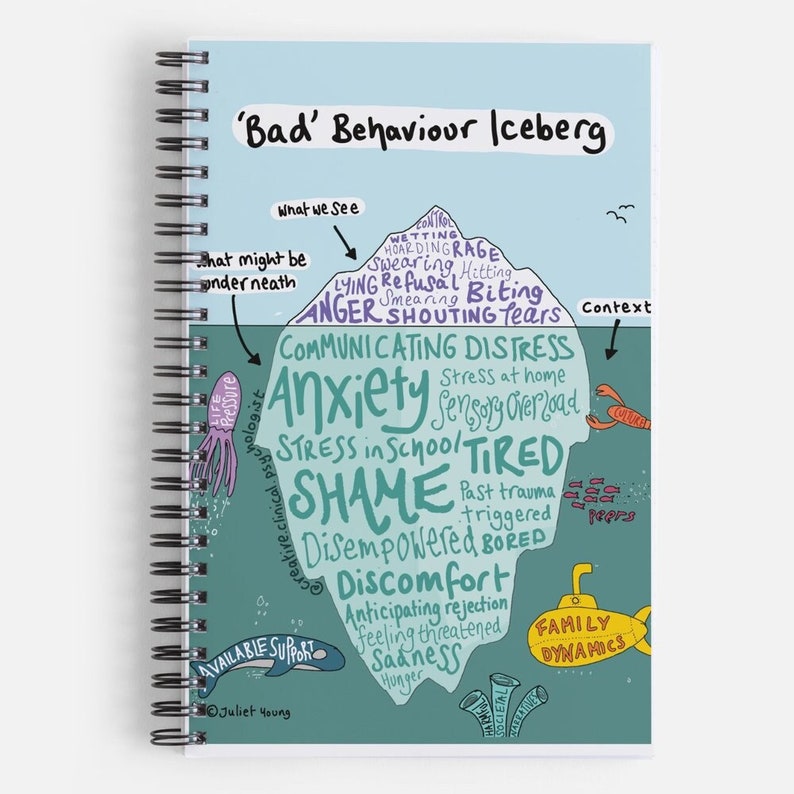 'Bad' Behaviour Iceberg
What we see
What might be
underneath
Context
CONTROL
WETTING
HOARDING RAGE
Swearing Hitting
LYING Refusal
Smearing Biting
ANGER SHOUTING Tears
COMMUNICATING DISTRESS
Anxiety
Stress at home
Sensory Overload
STRESS in School TIRED
SHAME
Past trauma
triggered
Disempowered BORED
Discomfort
Anticipating rejection
feeling threatened
Sadness
Hunger
@creative.clinical.psychologist
LIFE
Pressure
CULTURE
peers
FAMILY
DYNAMICS
AVAILABLE SUPPORT
HARMFUL
SOCIETAL
NARRATIVES
©Juliet Young